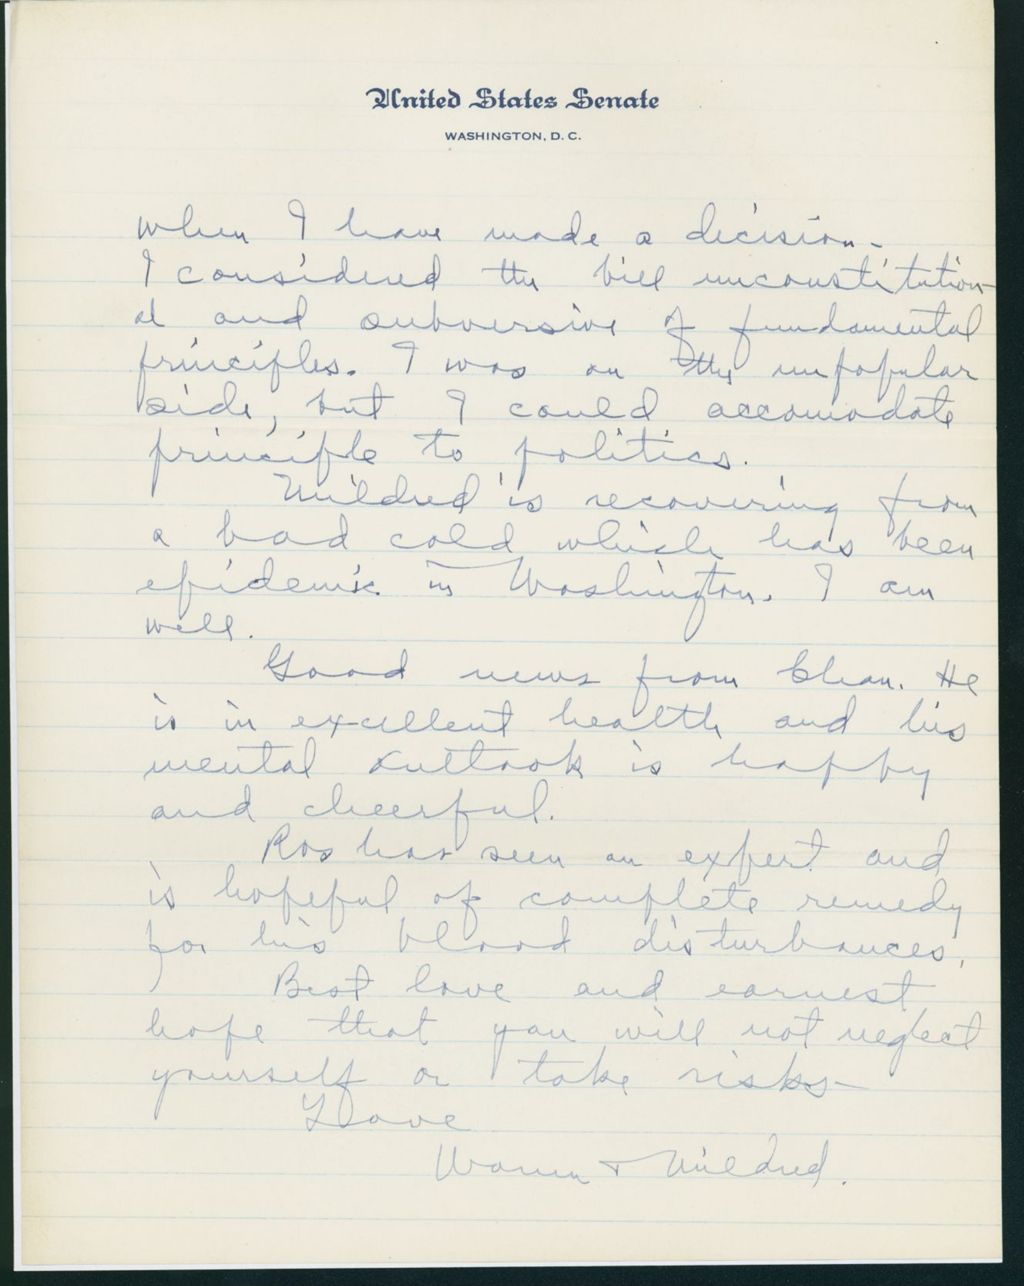 United States Senate
WASHINGTON, D. C.
when I have made a decision-
I considered the bill unconstitution-
al and subversive of fundamental
principles. I was on the unpopular
side, but I could accomodate
principle to politics.
Mildred is recovering from
a bad cold which has been
epidemic in Washington. I am
well.
Good news from Chan. He
is in excellent health and his
mental outlook is happy
and cheerful.
Ros has seen an expert and
is hopeful of complete remedy
for his blood disturbances.
Best love and earnest
hope that you will not neglect
yourself or take risks-
Love
Warren + Mildred.